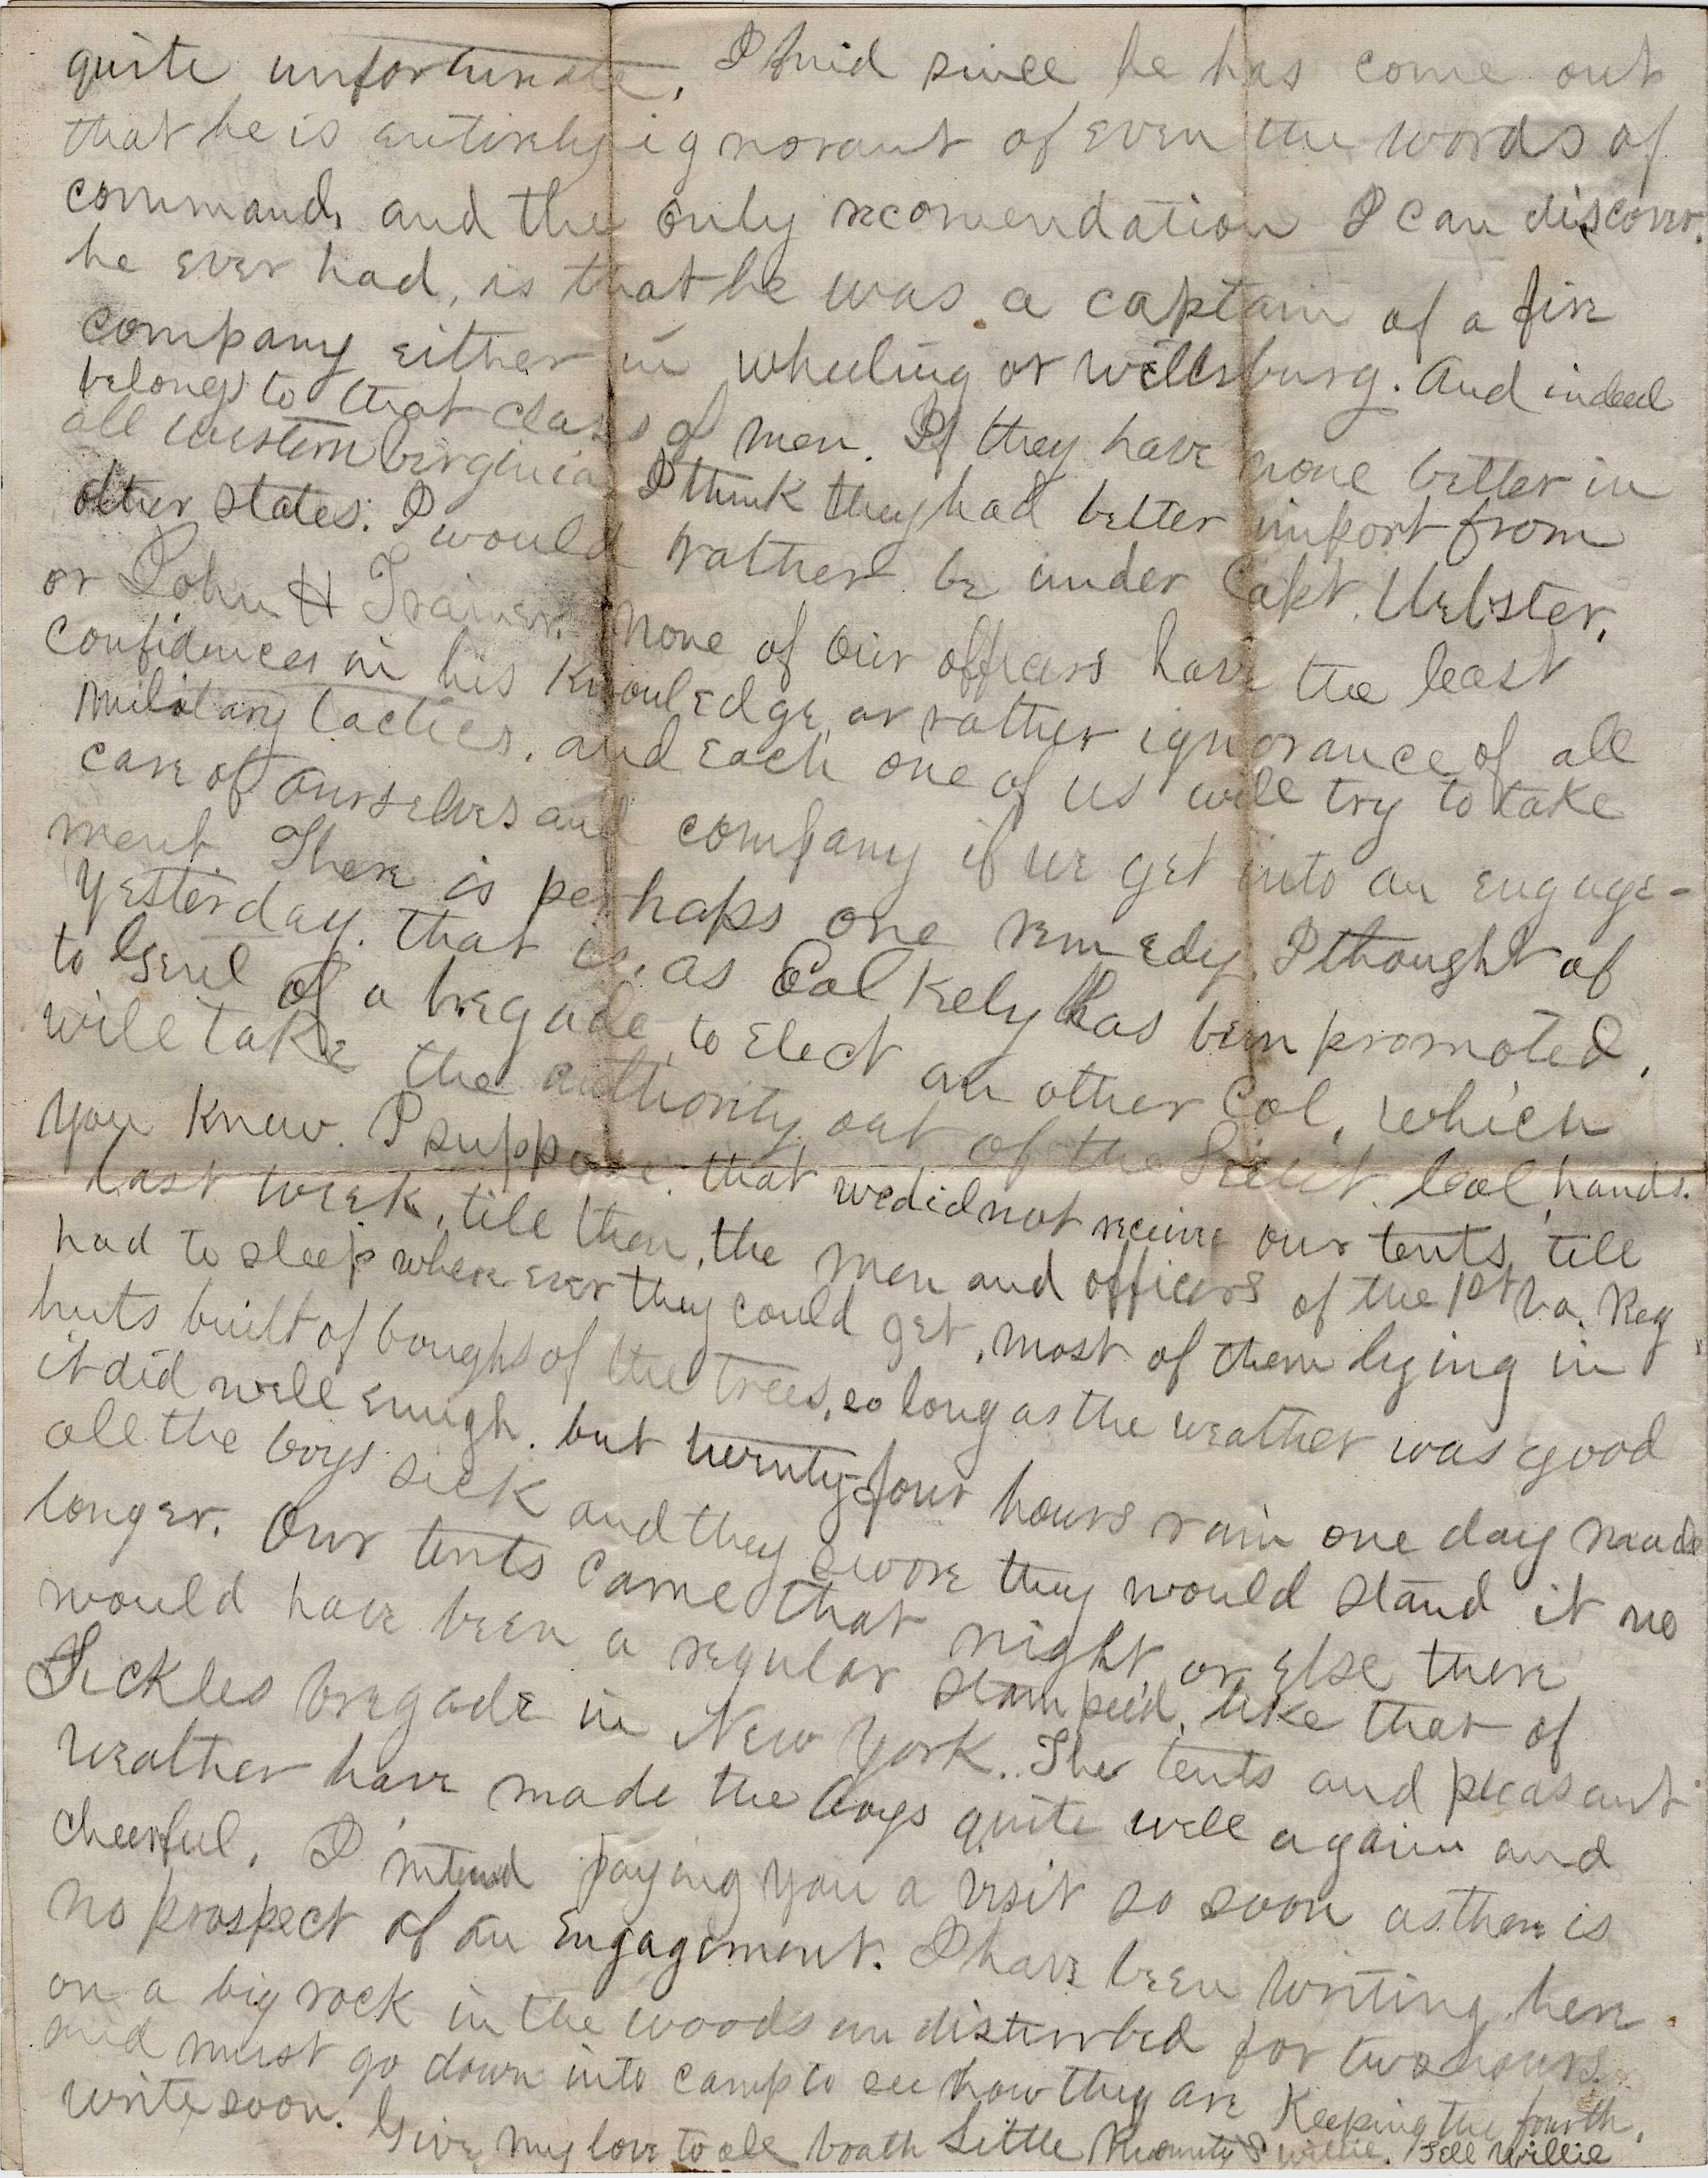 quite unfortunate, I find since he has come out
that he is entirely ignorant of even the words of
command, and the only recomendation I can discover.
he ever had, is that he was a captain of a fire
company either in wheeling or wellsburg. And indeed
belongs to that class of men. If they have none better in
all western virginia I think they had better import from
other states. I would rather be under Capt. Webster,
or John H Trainer. None of our officers have the least
confidences in his knowledge, or rather ignorance of all
military tactics, and each one of us will try to take
care of ourselves and company if we get into an engage-
ment. There is perhaps one remedy, I thought of
yesterday. that is, as Col Kely has been promoted,
to Genl of a bregade, to elect an other Col, which
will take the authority out of the Lieut. Col, hands.
you know. I suppose. that we did not receive our tents, till
last week, till then, the men and officers of the 1st Va. Reg
had to sleep where ever they could get, most of them lying in
huts built of boughs of the trees, so long as the weather was good
it did well enugh. but twenty-four hours rain one day made
all the boys sick and they swore they would stand it no
longer. Our tents came that night, or else there
would have been a regular stampeed, like that of
Sickles bregade in New York. The tents and pleasant
weather have made the boys quite well again and
cheerful. I intend paying you a visit so soon as there is
no prospect of an Engagement. I have been writing here
on a big rock in the woods undisturbed for two hours.
and must go down into camp to see how they are Keeping the fourth.
write soon. Give my love to all Little & willie. Tell Willie